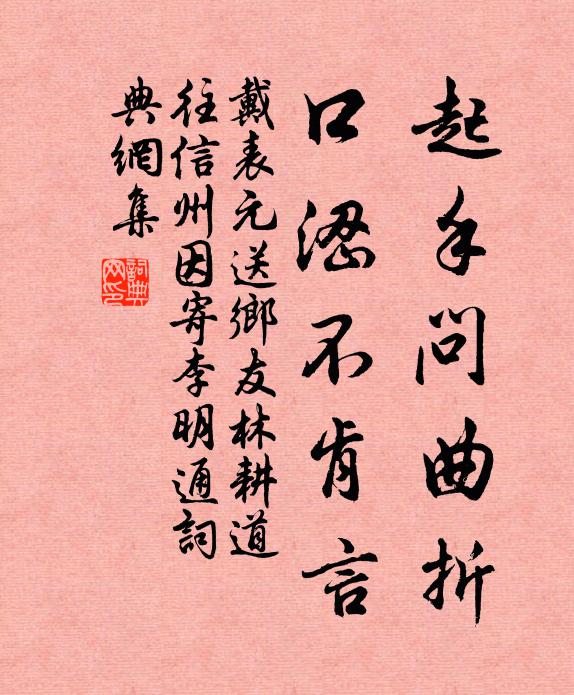 起手问曲折
口涩不肯言
戴表元送鄉友林耕道
往信州因寄李明通詞
典網集
詞典网印